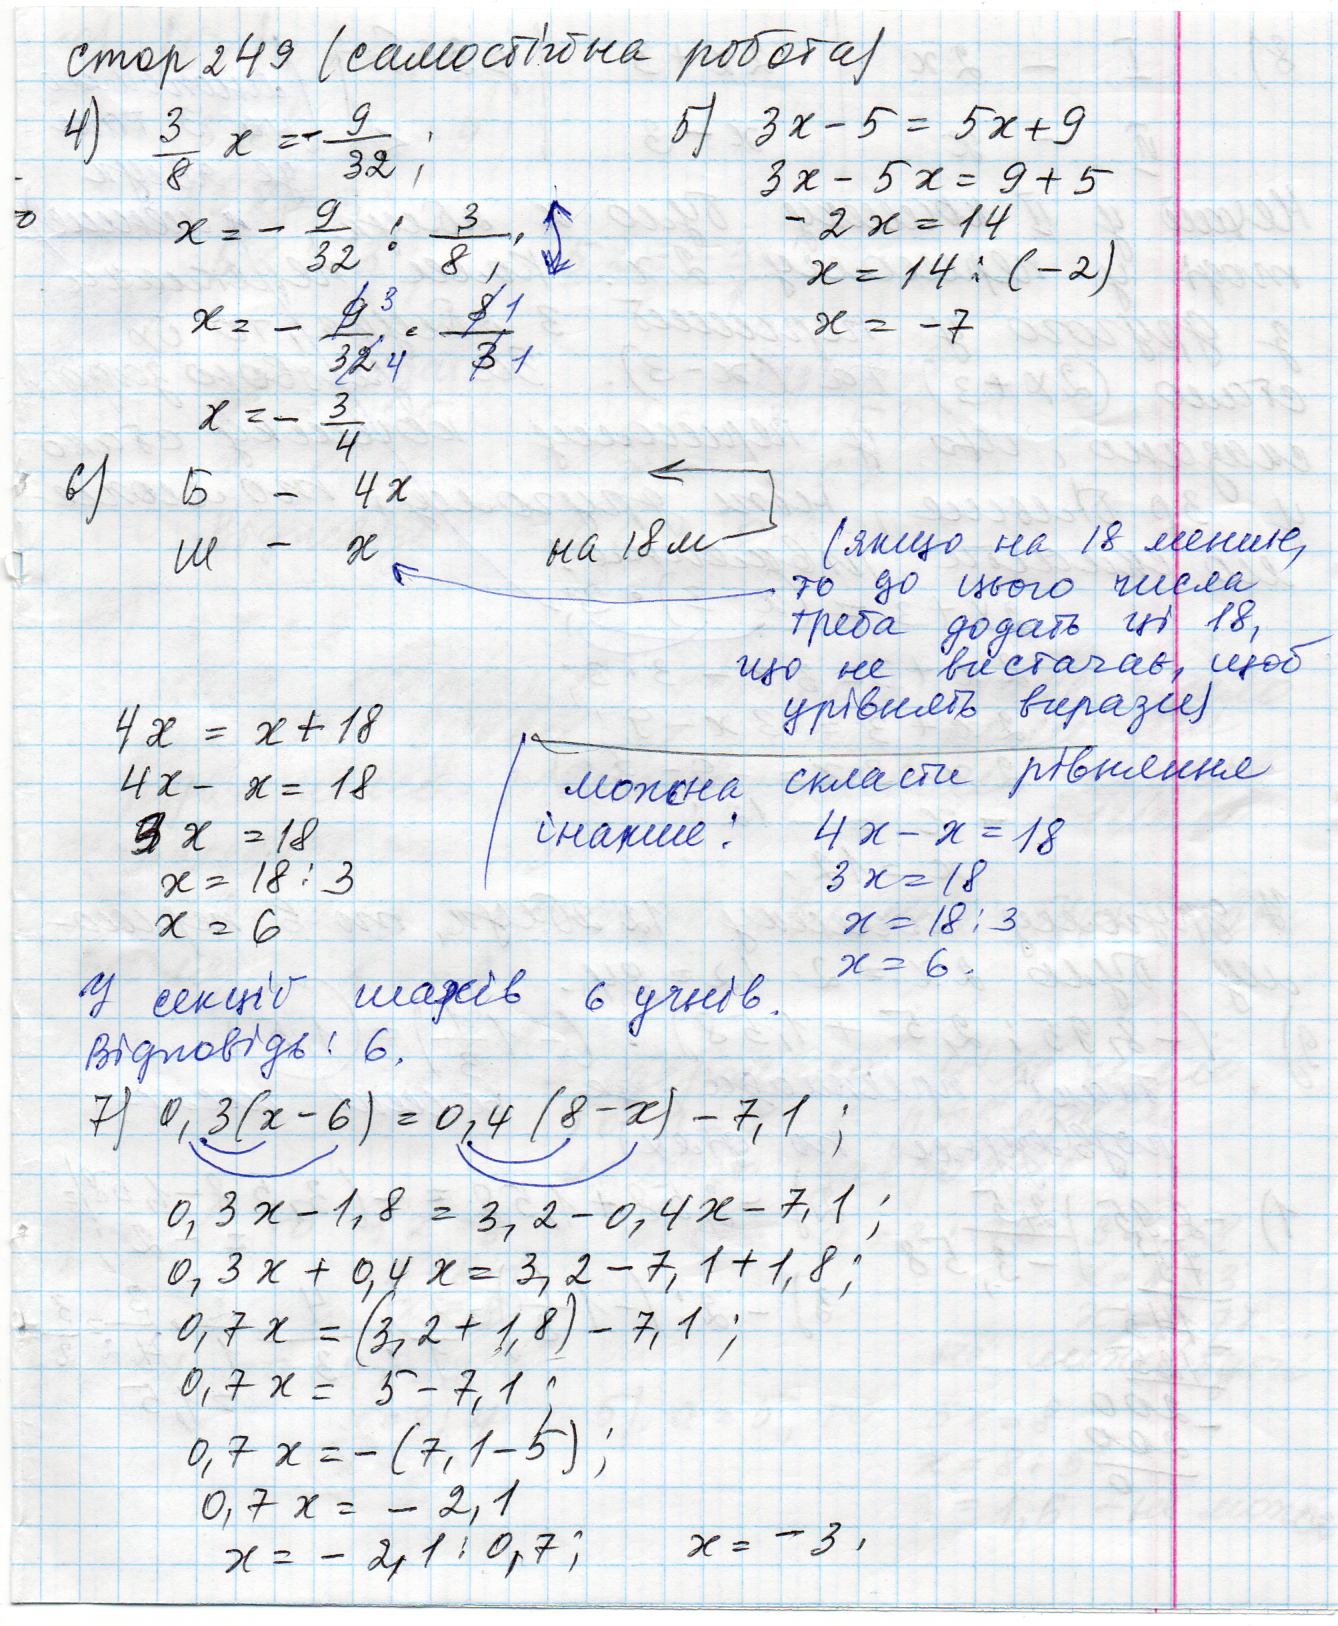 стор 249 (самостійна робота)
4) 3/8 x = - 9/32 ;
x = - 9/32 : 3/8 ;
x = - 9/32 · 8/3
3 1
4 1
x = - 3/4
5) 3x - 5 = 5x + 9
3x - 5x = 9 + 5
-2x = 14
x = 14 : (-2)
x = -7
6) Б - 4x
Ш - x на 18 м
(якщо на 18 менше,
то до цього числа
треба додать ці 18,
що не вистачає, щоб
урівнять вирази)
4x = x + 18
4x - x = 18
3x = 18
x = 18 : 3
x = 6
можна скласти рівняння
інакше: 4x - x = 18
3x = 18
x = 18 : 3
x = 6.
У секції шахів 6 учнів.
Відповідь: 6.
7) 0,3(x - 6) = 0,4(8 - x) - 7,1 ;
0,3x - 1,8 = 3,2 - 0,4x - 7,1 ;
0,3x + 0,4x = 3,2 - 7,1 + 1,8 ;
0,7x = (3,2 + 1,8) - 7,1 ;
0,7x = 5 - 7,1 ;
0,7x = -(7,1 - 5) ;
0,7x = - 2,1
x = - 2,1 : 0,7 ; x = - 3.